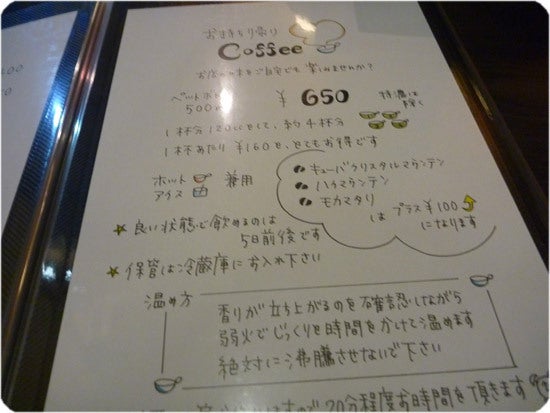 お持ち帰り
Coffee
お店の味をご自宅でも楽しみませんか？
ペットボトル
500ml
¥650
特濃は
除く
1杯分120ccとして、約4杯分
1杯あたり¥160と、とてもお得です
ホット
アイス
兼用
キューバクリスタルマウンテン
ハワマウンテン
モカマタリ
は プラス¥100
になります
良い状態で飲めるのは
5日前後です
保管は冷蔵庫にお入れ下さい
温め方
香りが立ち上がるのを確認しながら
弱火でじっくりと時間をかけて温めます
絶対に沸騰させないで下さい
ので20分程度お時間を頂きます